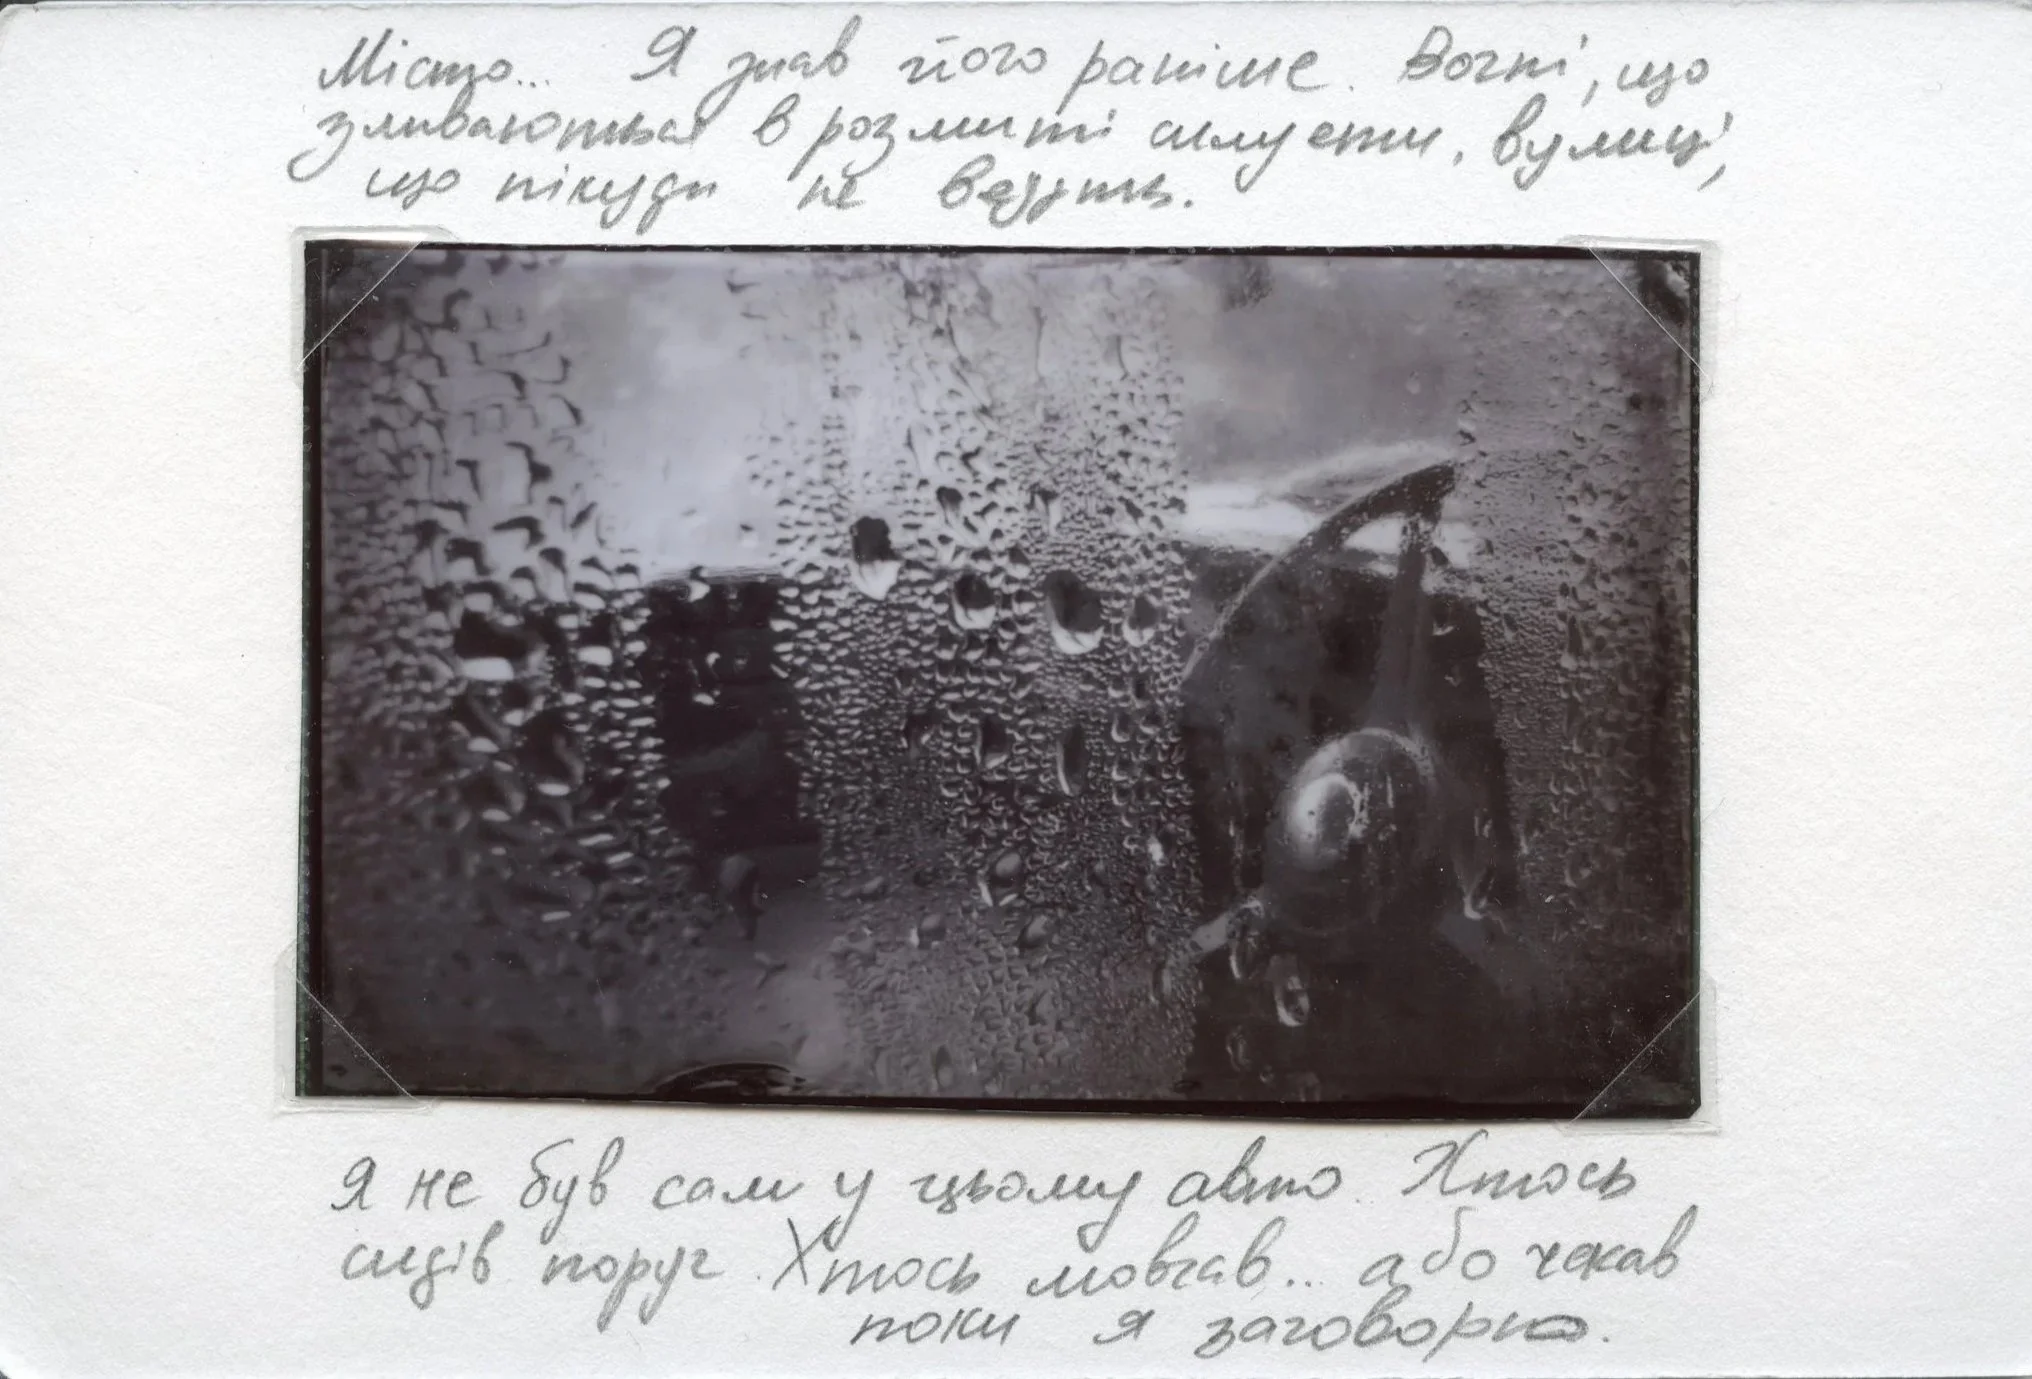 Місто... Я знав його раніше. Вогні, що
зливаються в розмиті силуети, вулиці,
що нікуди не ведуть.
Я не був сам у цьому авто. Хтось
сидів поруч. Хтось мовчав... або чекав
поки я заговорю.